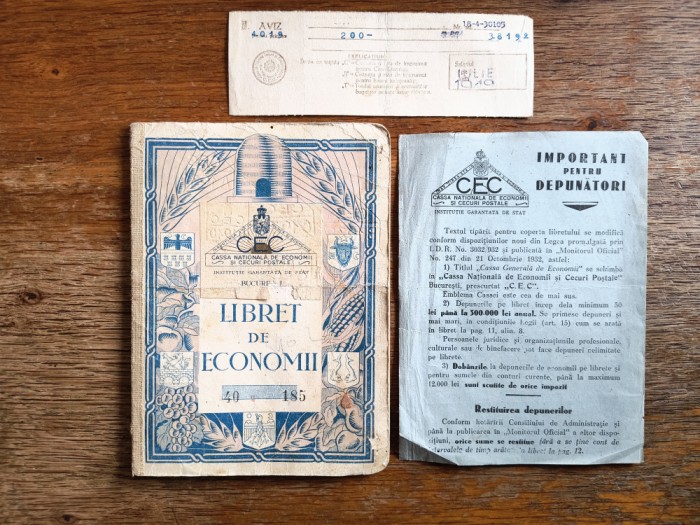 AVIZ
Nr 18-4-30105
200-
36192
CEC
CASSA NATIONALA DE ECONOMII
ȘI CECURI POSTALE
INSTITUȚIE GARANTATA DE STAT
BUCUREȘTI
LIBRET
DE
ECONOMII
40 185
CEC
CASSA NATIONALA DE ECONOMII
ȘI CECURI POSTALE
INSTITUȚIE GARANTATA DE STAT
IMPORTANT
PENTRU
DEPUNĂTORI
Textul tipării pentru coperta libretului se modifică
conform dispozițiunilor noui din Legea promulgată prin
I.D.R. No. 3032/932 și publicată în „Monitorul Oficial"
No. 247 din 21 Octombrie 1932, astfel:
1) Titlul „Cassa Generală de Economii" se schimbă
în „Cassa Națională de Economii și Cecuri Poștale"
București, prescurtat „C.E.C".
Emblema Cassei este cea de mai sus.
2) Depunerile pe libret încep dela minimum 50
lei până la 500.000 lei anual. Se primesc depuneri și
mai mari, în condițiunile Legii (art. 15) cum se arată
în libret la pag. 11, alin. 8.
Persoanele juridice și organizațiunile profesionale,
culturale sau de binefacere pot face depuneri nelimitate
pe librete.
3) Dobânzile la depunerile de economii pe librete și
pentru sumele din conturi curente, până la maximum
12.000 lei sunt scutite de orice impozit
Restituirea depunerilor
Conform hotărîrii Consiliului de Administrație și
până la publicarea în „Monitorul Oficial" a altor dispo-
zițiuni, orice sume se restitue fără a se ține cont de
intervalele de timp arătate în libret la pag. 12.